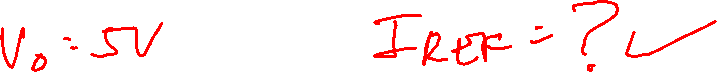 V₀ = 5V I_REF = ? ✓